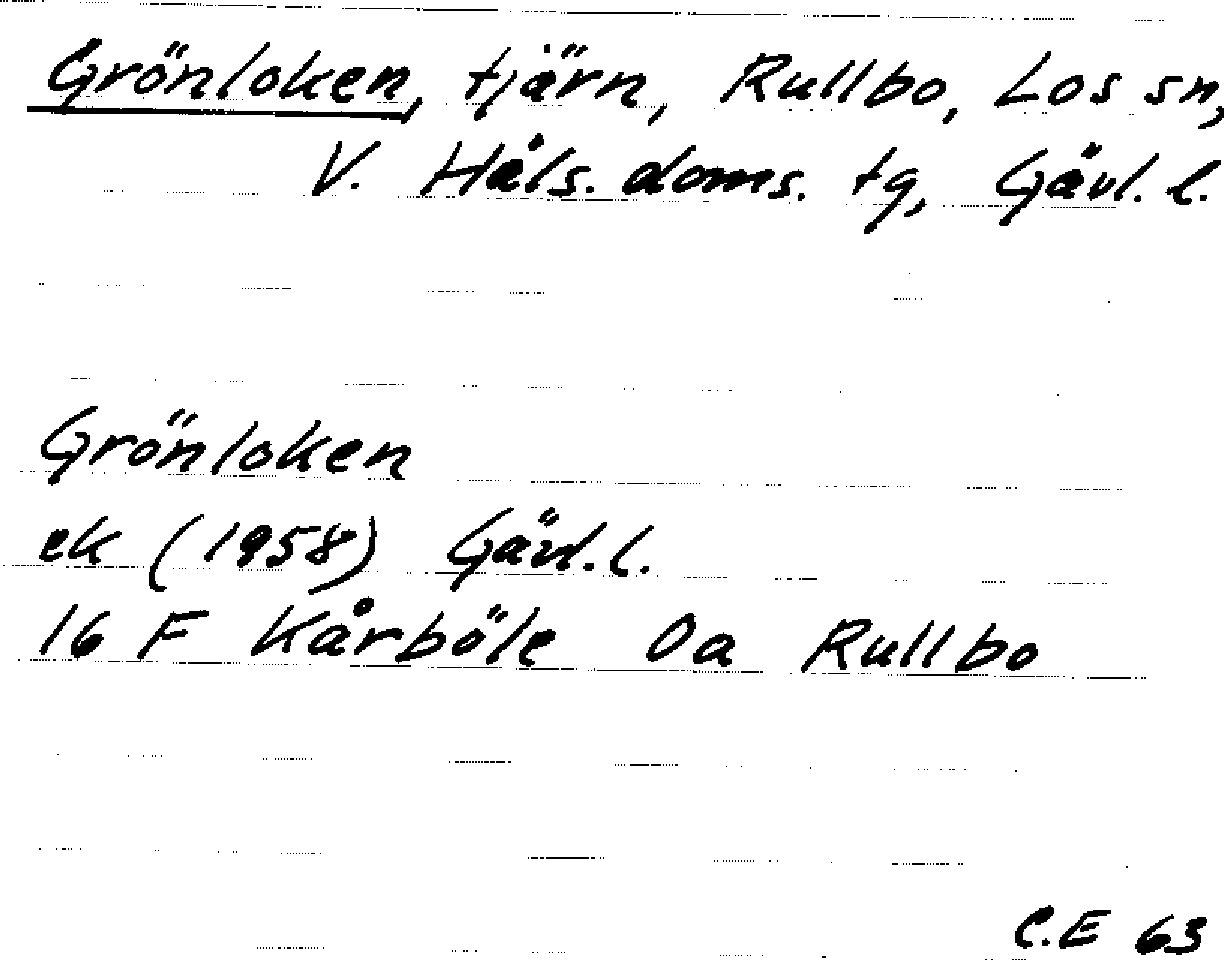 Grönloken, tjärn, Rullbo, Los sn,
V. Häls. doms. tg, Gävl. l.
Grönloken
ek (1958) Gävl. l.
16 F Kårböle 0a Rullbo
C.E 63